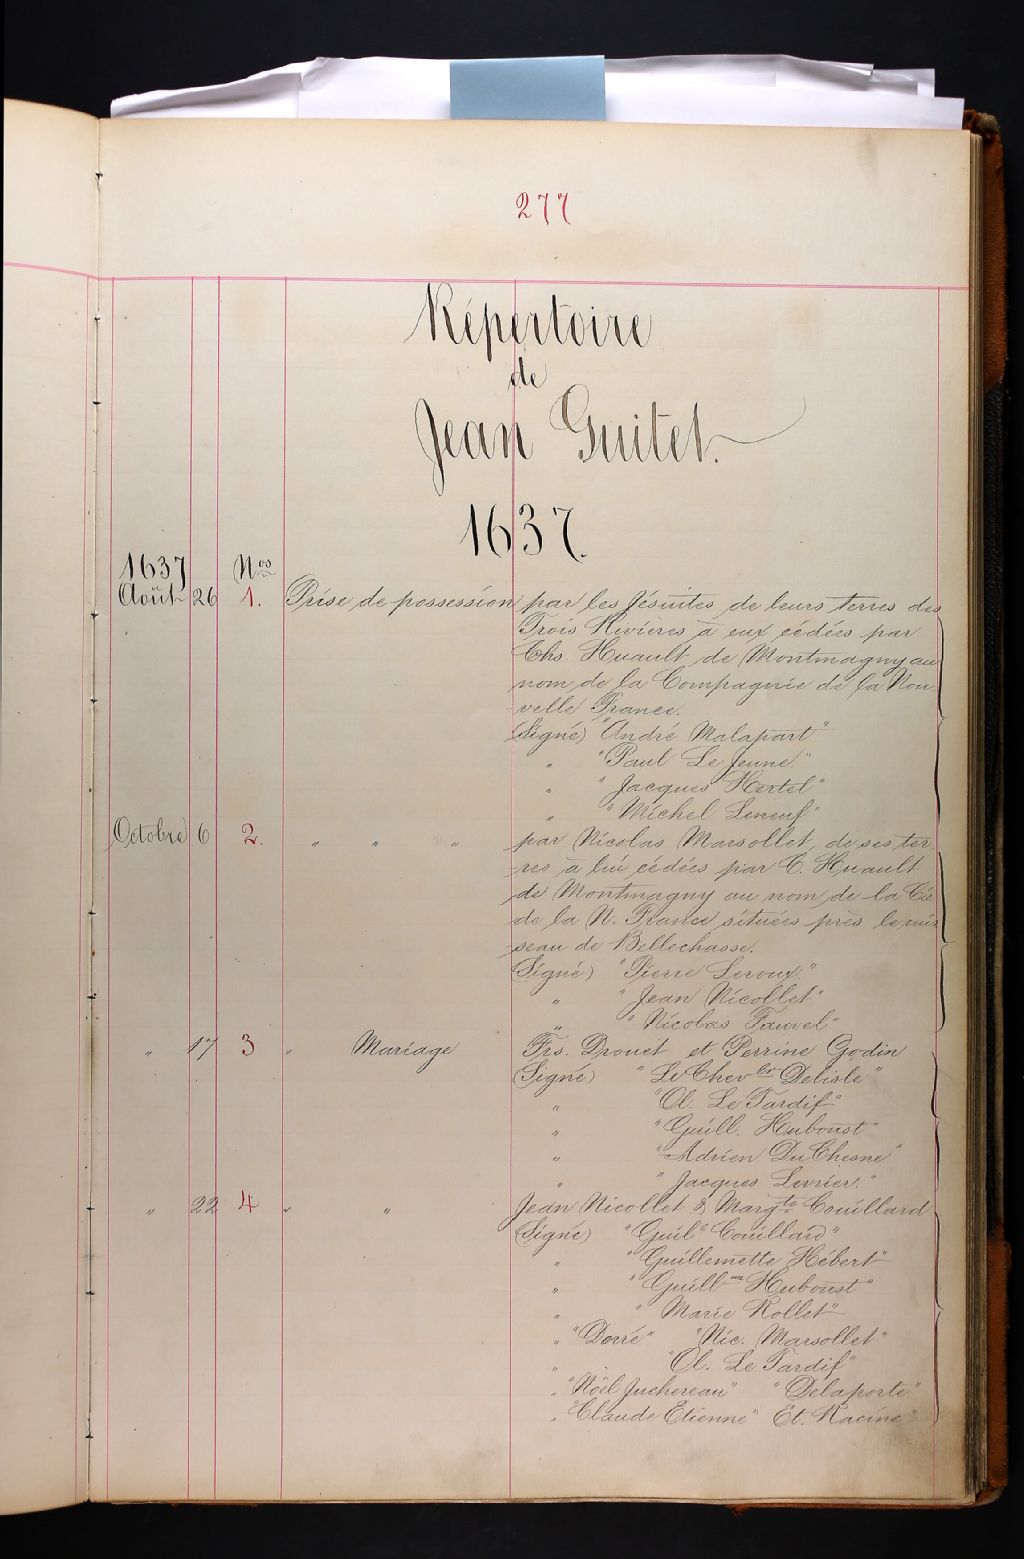 277
Répertoire
de
Jean Guitet.
1637.
1637 Nos
Août 26 1. Prise de possession par les Jésuites de leurs terres des
Trois Rivières à eux cédées par
Chs. Huault de Montmagny au
nom de la Compagnie de la Nou-
velle France.
(Signé) "André Malapart"
" "Paul Le Jeune."
" "Jacques Hertel"
" "Michel Leneuf"
Octobre 6 2. " " " par Nicolas Marsollet, de ses ter-
res à lui cédées par C. Huault
de Montmagny au nom de la Cie
de la N. France situées près le ruis-
seau de Bellechasse.
(Signé) "Pierre Leroux."
" "Jean Nicollet"
" "Nicolas Fauvel"
" 17 3 " Mariage Frs. Drouet et Perrine Godin
(Signé) "Le Chevler Delisle"
" "Ol. Le Tardif"
" "Guill. Huboust"
" "Adrien DuChesne"
" "Jacques Levrier."
" 22 4 " " Jean Nicollet & Margte Couillard
(Signé) "Guile Couillard"
" "Guillemette Hébert"
" "Guillme Huboust"
" "Marie Rollet"
" "Dorré" "Nic. Marsollet"
" "Ol. Le Tardif"
" "Nöel Juchereau" "Delaporte"
" "Claude Etienne" Et. Racine"